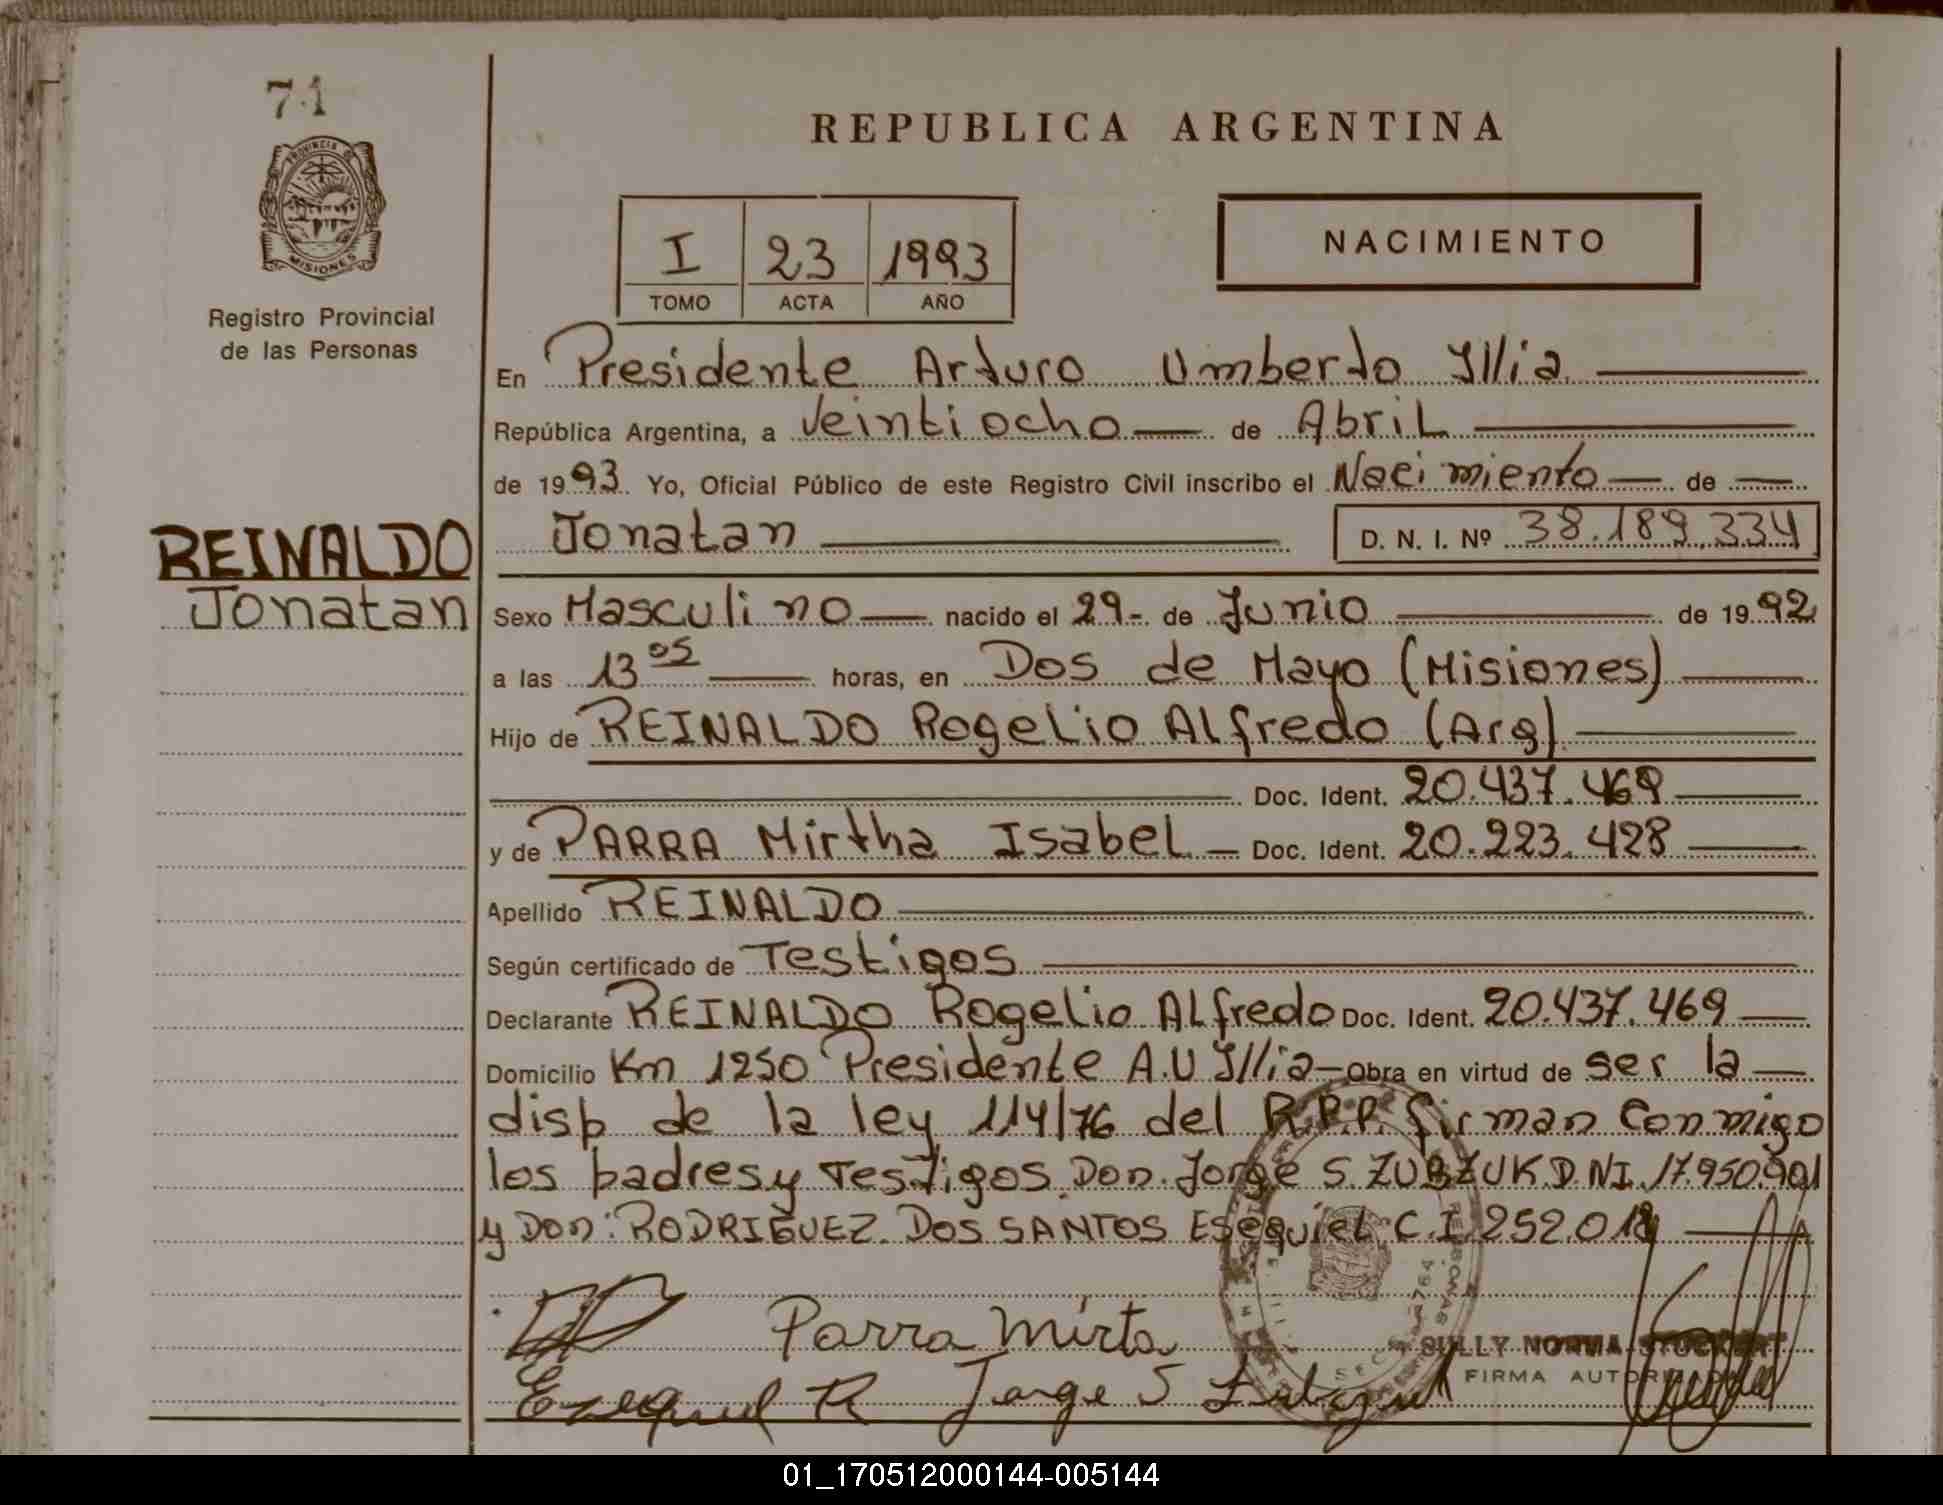 71
PROVINCIA DE
MISIONES
Registro Provincial
de las Personas
REINALDO
Jonatan
REPUBLICA ARGENTINA
I 23 1993
TOMO ACTA AÑO
NACIMIENTO
En Presidente Arturo Umberto Illia
República Argentina, a Veintiocho de Abril
de 1993 Yo, Oficial Público de este Registro Civil inscribo el Nacimiento de
Jonatan D. N. I. Nº 38.189.334
Sexo Masculino nacido el 29 de Junio de 1992
a las 13 05 horas, en Dos de Mayo (Misiones)
Hijo de REINALDO Rogelio Alfredo (Arg)
Doc. Ident. 20.437.469
y de PARRA Mirtha Isabel Doc. Ident. 20.223.428
Apellido REINALDO
Según certificado de Testigos
Declarante REINALDO Rogelio Alfredo Doc. Ident. 20.437.469
Domicilio Km 1250 Presidente A.U Illia Obra en virtud de ser la
disp de la ley 114/76 del R.P.P. firman conmigo
los padres y Testigos Don. Jorge S. ZUBZUK D NI. 17.950.901
y Don: RODRIGUEZ. DOS SANTOS Esequiel C.I 252.018
Parra Mirta
SULLY NORMA STOCKERT
Ezequiel R Jorge S
FIRMA AUTORIZADA
01_170512000144-005144